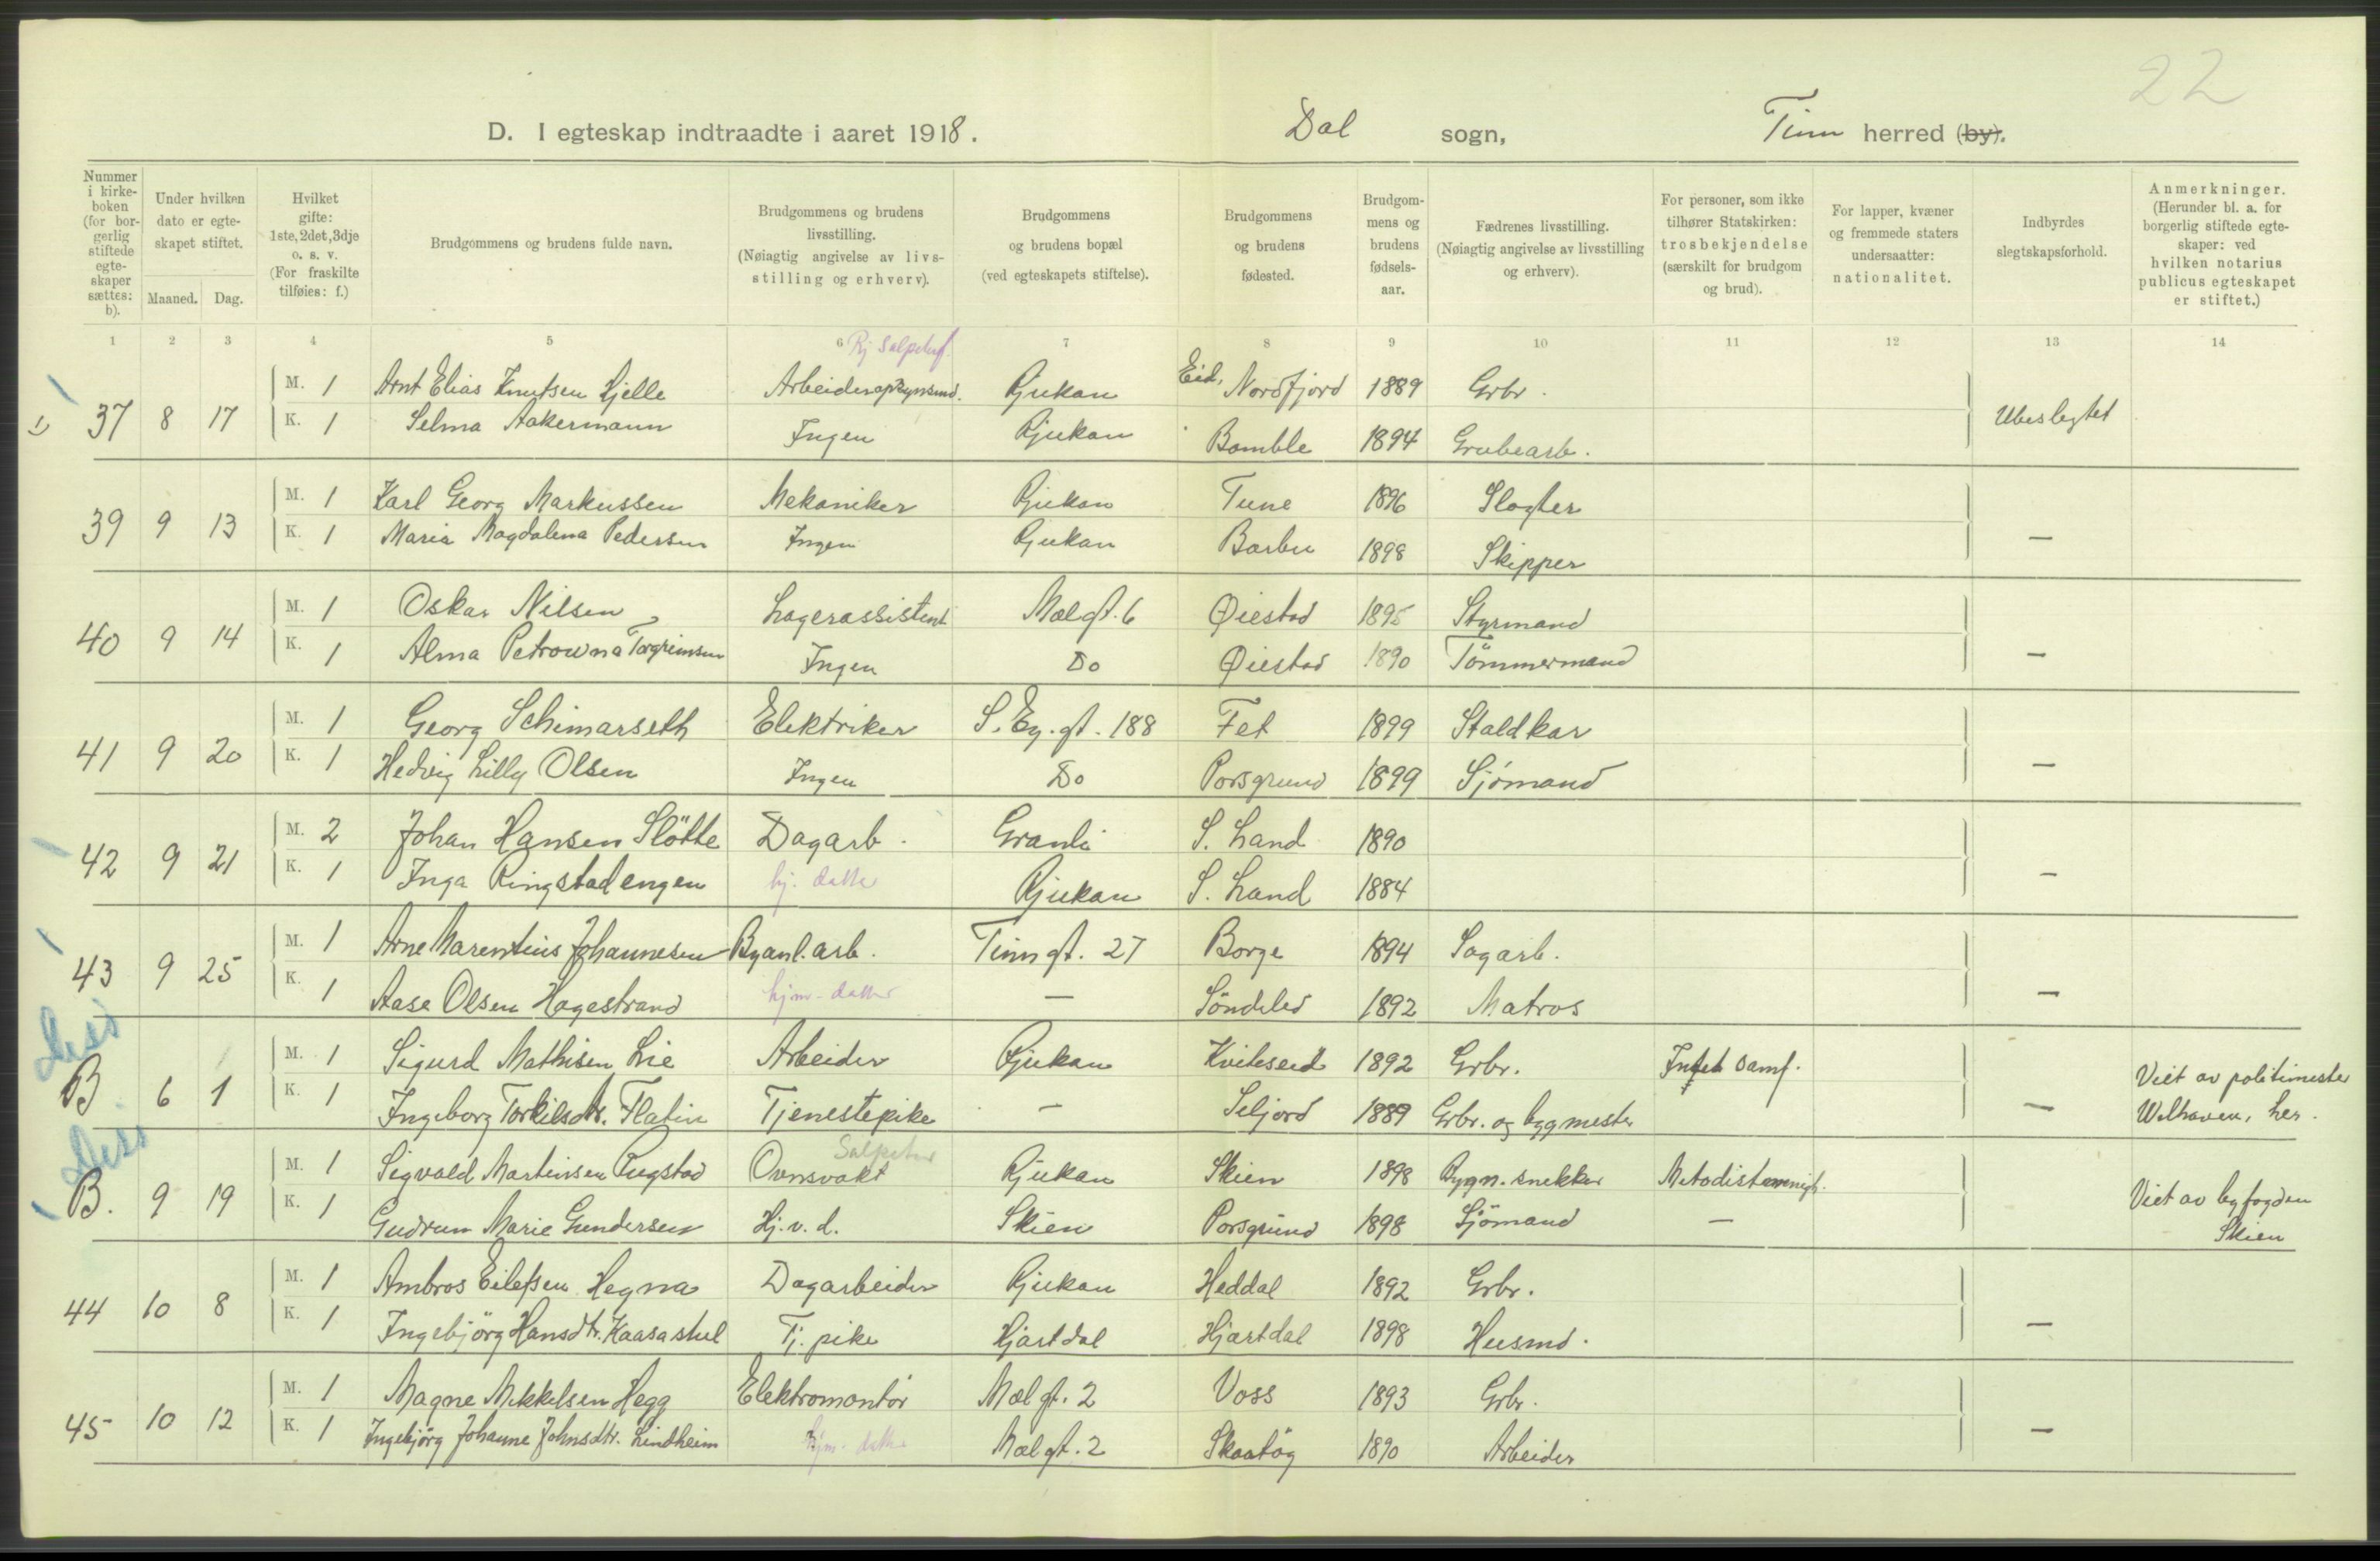 22
D. I egteskap indtraadte i aaret 1918. Dal sogn, Tinn herred (by).
Nummer i kirkeboken (for borgerlig stiftede egteskaper sættes: b).
Under hvilken dato er egteskapet stiftet.
Maaned. Dag.
Hvilket gifte: 1ste, 2det, 3dje o. s. v. (For fraskilte tilføies: f.)
Brudgommens og brudens fulde navn.
Brudgommens og brudens livsstilling. (Nøiagtig angivelse av livsstilling og erhverv).
Brudgommens og brudens bopæl (ved egteskapets stiftelse).
Brudgommens og brudens fødested.
Brudgommens og brudens fødselsaar.
Fædrenes livsstilling. (Nøiagtig angivelse av livsstilling og erhverv).
For personer, som ikke tilhører Statskirken: trosbekjendelse (særskilt for brudgom og brud).
For lapper, kvæner og fremmede staters undersaatter: nationalitet.
Indbyrdes slegtskapsforhold.
Anmerkninger. (Herunder bl. a. for borgerlig stiftede egteskaper: ved hvilken notarius publicus egteskapet er stiftet.)
1 2 3 4 5 6 7 8 9 10 11 12 13 14
Rj Salpeterf.
37 8 17 M. 1 Arnt Elias Knutsen Hjelle Arbeideropsynsmd. Rjukan Eid, Nordfjord 1889 Grbr.
K. 1 Selma Aakermann Ingen Rjukan Bamble 1894 Grubearb. Ubeslegtet
39 9 13 M. 1 Karl Georg Markussen Mekaniker Rjukan Tune 1896 Slagter
K. 1 Maria Magdalena Pedersen Ingen Rjukan Barbu 1898 Skipper —
40 9 14 M. 1 Oskar Nilsen Lagerassistent Mælgt. 6 Øiestad 1895 Styrmand
K. 1 Alma Petrowna Torgrimsen Ingen Do Øiestad 1890 Tömmermand —
41 9 20 M. 1 Georg Schimarseth Elektriker S. Eg. gt. 188 Fet 1899 Staldkar
K. 1 Hedvig Lilly Olsen Ingen Do Porsgrund 1899 Sjömand —
42 9 21 M. 2 Johan Hansen Slötte Dagarb. Granli S. Land 1890
K. 1 Inga Ringstadengen hj. datter Rjukan S. Land 1884 —
43 9 25 M. 1 Arne Marentius Johannesen Byanl. arb. Tinngt. 27 Borge 1894 Sagarb.
K. 1 Aase Olsen Hagestrand hjm-datter — Söndeled 1892 Matros —
B 6 1 M. 1 Sigurd Mathisen Lie Arbeider Rjukan Kviteseid 1892 Grbr. Intet samf. Viet av politimester
K. 1 Ingeborg Torkilsdtr. Flatin Tjenestepike — Seljord 1889 Grbr. og byggmester — Welhaven, her.
Salpeter
B. 9 19 M. 1 Sigvald Martinsen Rugstad Ovnsvakt Rjukan Skien 1898 Bygn. snekker Metodistmenigh. Viet av byfogden
K. 1 Gudrun Marie Gundersen Hj. v. d. Skien Porsgrund 1898 Sjömand — Skien
44 10 8 M. 1 Ambros Eilefsen Hegna Dagarbeider Rjukan Heddal 1892 Grbr.
K. 1 Ingebjörg Hansdtr. Kaasastul Tj. pike Hjartdal Hjartdal 1898 Husmd. —
45 10 12 M. 1 Magne Mikkelsen Hegg Elektromontör Mæl gt. 2 Voss 1893 Grbr.
K. 1 Ingebjörg Johanne Johnsdtr. Lindheim hjm-datter Mæl gt. 2 Skaatöy 1890 Arbeider —